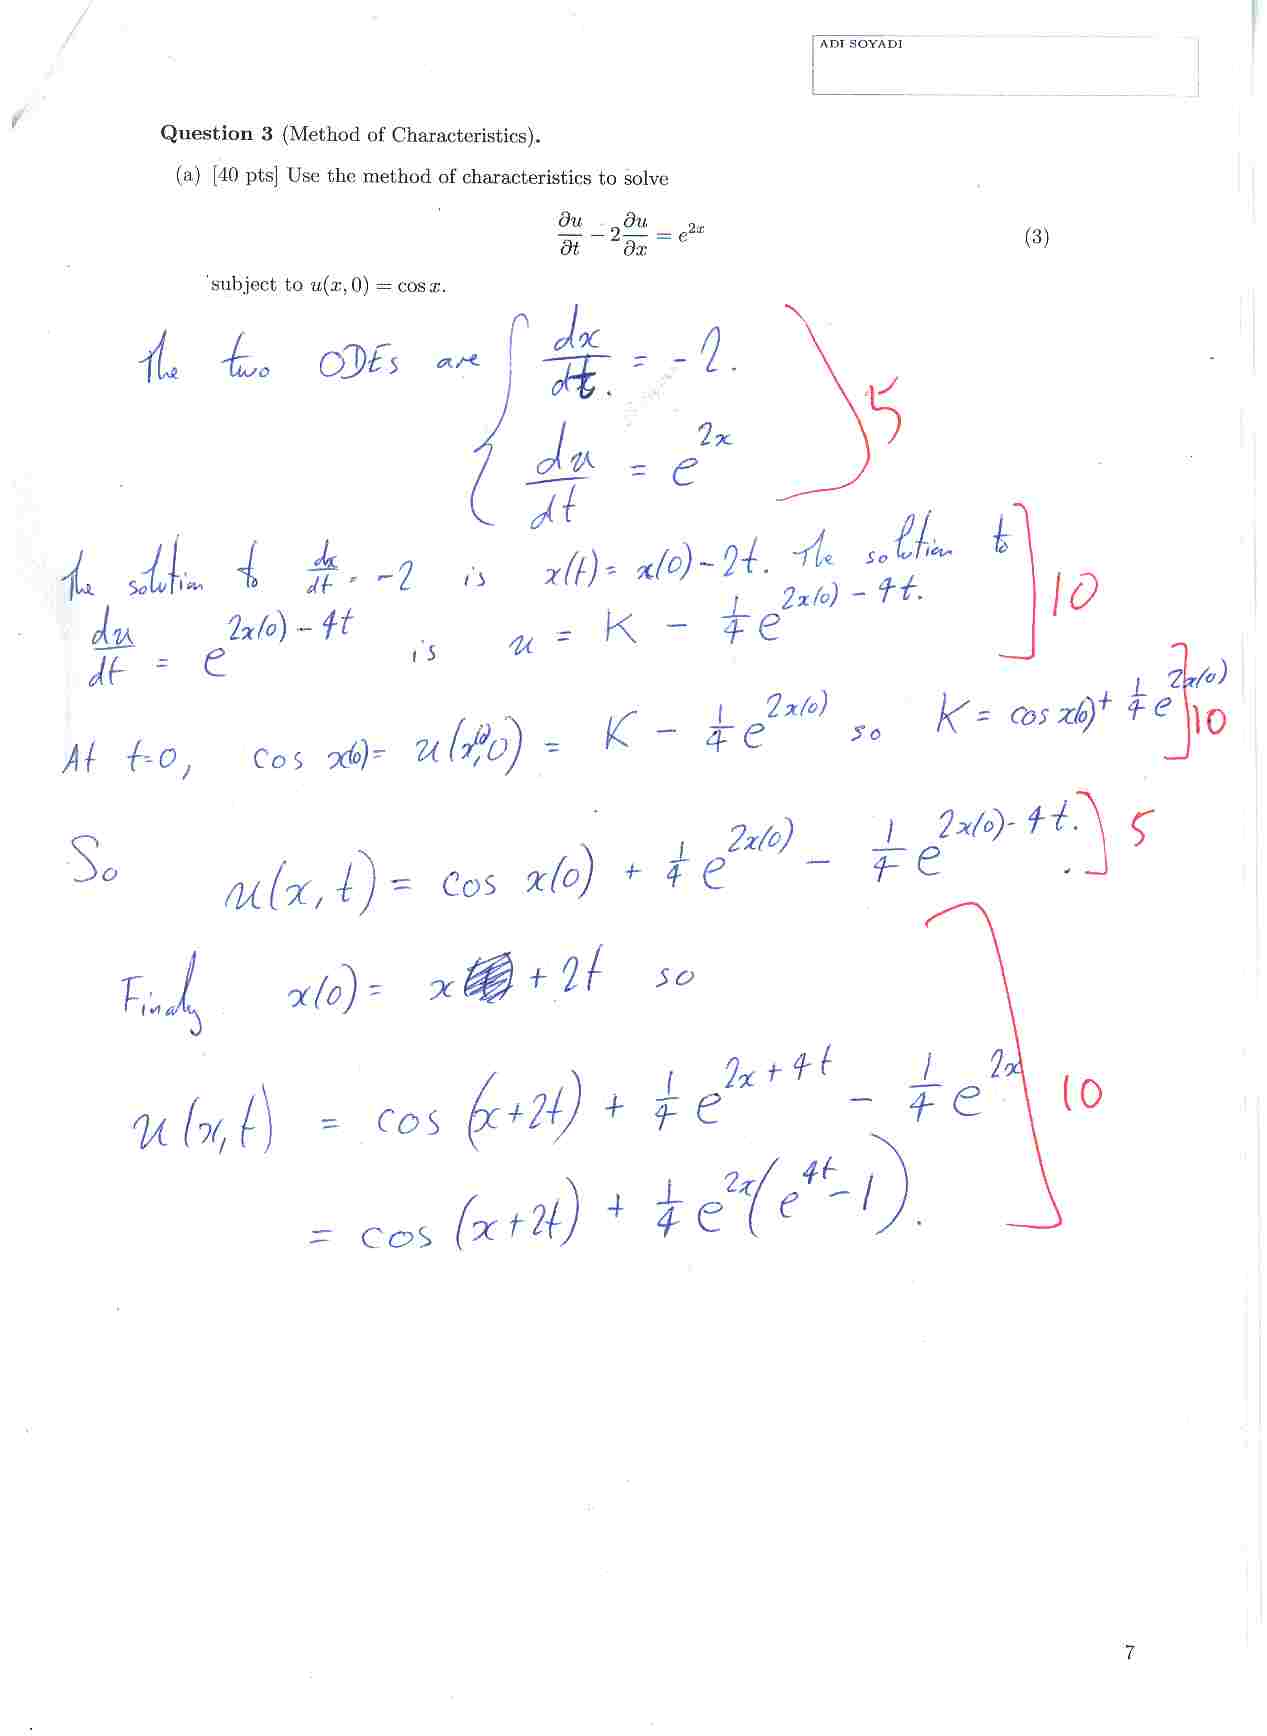 ADI SOYADI
Question 3 (Method of Characteristics).
(a) [40 pts] Use the method of characteristics to solve
∂u/∂t − 2 ∂u/∂x = e^{2x} (3)
subject to u(x, 0) = cos x.
The two ODEs are { dx/dt = -2.
du/dt = e^{2x}
5
The solution to dx/dt = -2 is x(t) = x(0) - 2t. The solution to
du/dt = e^{2x(0) - 4t} is u = K - 1/4 e^{2x(0) - 4t}.
10
At t=0, cos x(0) = u(x(0), 0) = K - 1/4 e^{2x(0)} so K = cos x(0) + 1/4 e^{2x(0)}
10
So u(x, t) = cos x(0) + 1/4 e^{2x(0)} - 1/4 e^{2x(0) - 4t}.
5
Finally x(0) = x + 2t so
u(x, t) = cos (x+2t) + 1/4 e^{2x + 4t} - 1/4 e^{2x}
10
= cos (x+2t) + 1/4 e^{2x} (e^{4t} - 1).
7